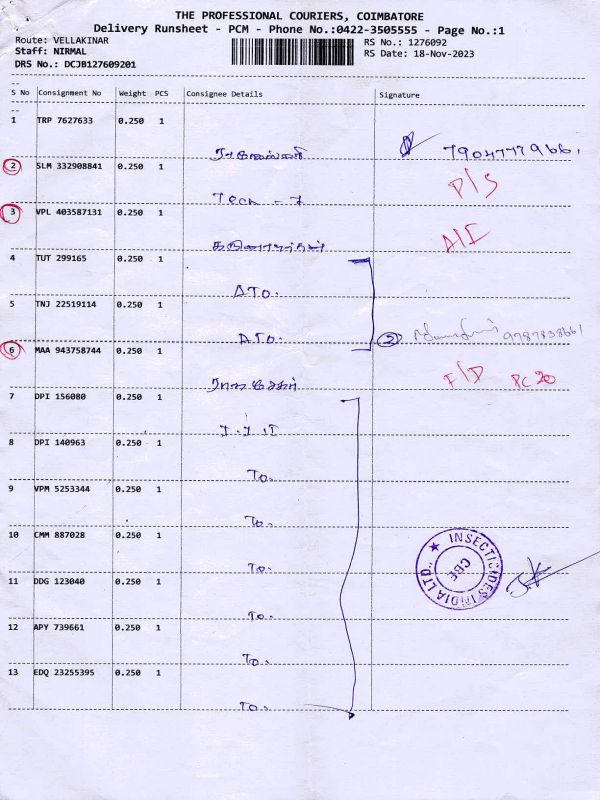 THE PROFESSIONAL COURIERS, COIMBATORE
Delivery Runsheet - PCM - Phone No.:0422-3505555 - Page No.:1
Route: VELLAKINAR
RS No.: 1276092
Staff: NIRMAL
RS Date: 18-Nov-2023
DRS No.: DCJB127609201
--
S No Consignment No Weight PCS Consignee Details Signature
--
1 TRP 7627633 0.250 1
7904777966
2 SLM 332908841 0.250 1
P/S
3 VPL 403587131 0.250 1
A/I
4 TUT 299165 0.250 1
ATO.
5 TNJ 22519114 0.250 1
ATO. 2 9787838661
6 MAA 943758744 0.250 1
ராஜசேகர் F/D
7 DPI 156080 0.250 1
I.I.I
8 DPI 140963 0.250 1
To.
9 VPM 5253344 0.250 1
To.
10 CMM 887028 0.250 1
INSECTICIDES INDIA LTD.
CBE
To.
11 DDG 123040 0.250 1
To.
12 APY 739661 0.250 1
To.
13 EDQ 23255395 0.250 1
To.